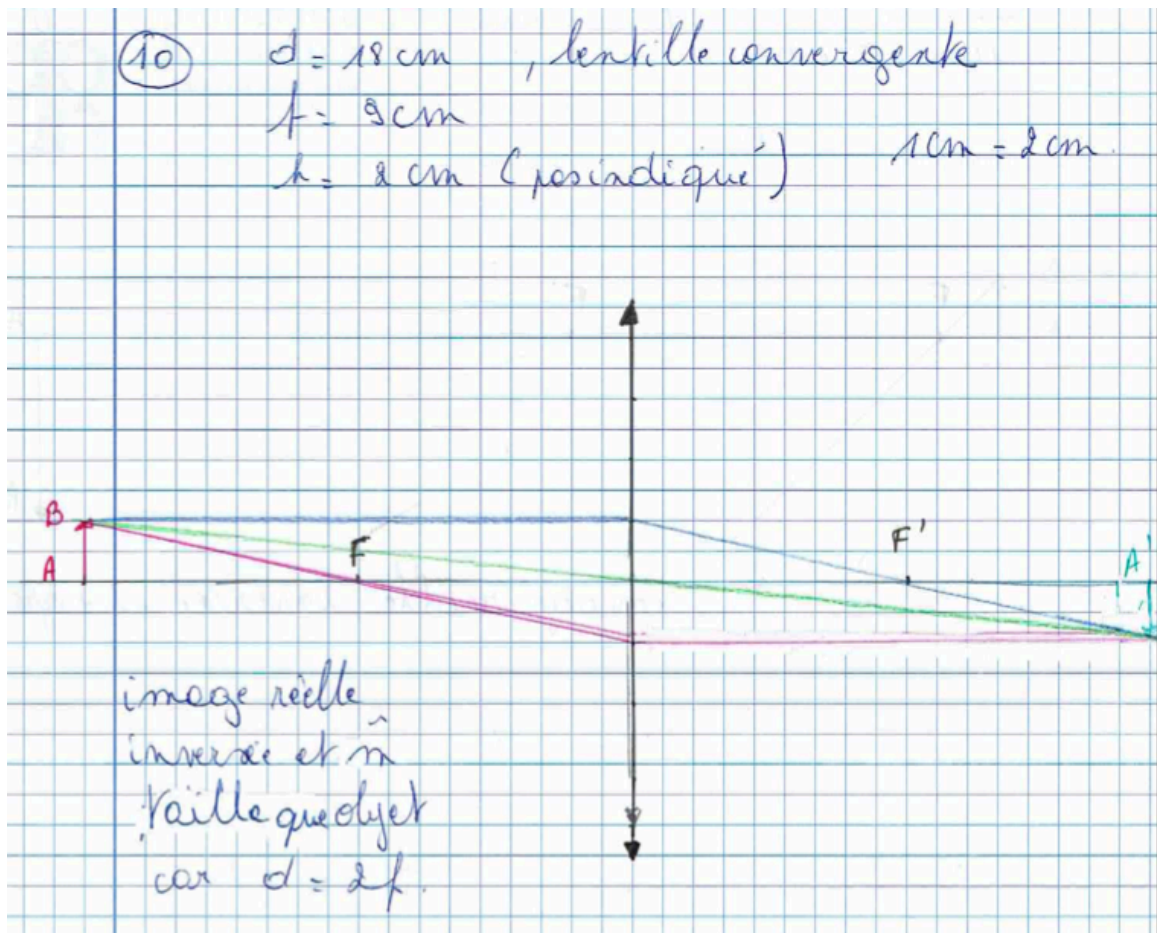 10 d = 18 cm , lentille convergente
f = 9 cm
h = 2 cm (pas indiqué) 1 cm = 2 cm.
B
F F'
A A'
image réelle
inversée et m̂
taille que objet
car d = 2f.